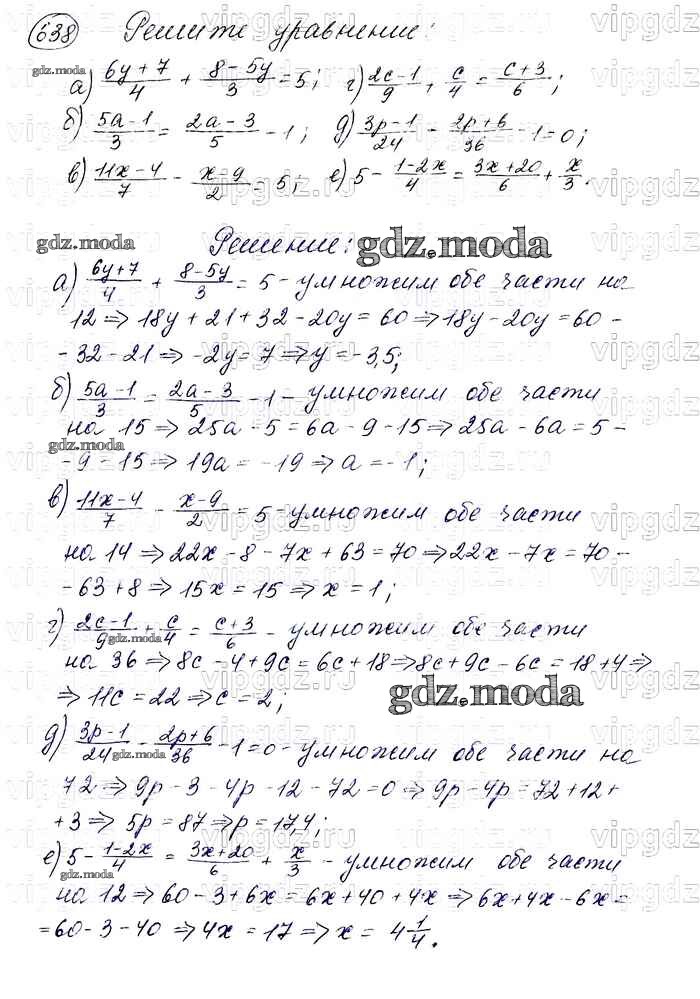 638 Решите уравнение:
а) (6y+7)/4 + (8-5y)/3 = 5; г) (2c-1)/9 + c/4 = (c+3)/6;
gdz.moda
б) (5a-1)/3 = (2a-3)/5 - 1; д) (3p-1)/24 - (2p+6)/36 - 1 = 0;
в) (11x-4)/7 - (x-9)/2 = 5; е) 5 - (1-2x)/4 = (3x+20)/6 + x/3.
gdz.moda Решение: gdz.moda
а) (6y+7)/4 + (8-5y)/3 = 5 - умножим обе части на
12 => 18y + 21 + 32 - 20y = 60 => 18y - 20y = 60 -
- 32 - 21 => -2y = 7 => y = -3,5;
б) (5a-1)/3 = (2a-3)/5 - 1 - умножим обе части
на 15 => 25a - 5 = 6a - 9 - 15 => 25a - 6a = 5 -
gdz.moda
- 9 - 15 => 19a = -19 => a = -1;
в) (11x-4)/7 - (x-9)/2 = 5 - умножим обе части
на 14 => 22x - 8 - 7x + 63 = 70 => 22x - 7x = 70 -
- 63 + 8 => 15x = 15 => x = 1;
г) (2c-1)/9 + c/4 = (c+3)/6 - умножим обе части
gdz.moda
на 36 => 8c - 4 + 9c = 6c + 18 => 8c + 9c - 6c = 18 + 4 =>
=> 11c = 22 => c = 2; gdz.moda
д) (3p-1)/24 - (2p+6)/36 - 1 = 0 - умножим обе части на
gdz.moda
72 => 9p - 3 - 4p - 12 - 72 = 0 => 9p - 4p = 72 + 12 +
+ 3 => 5p = 87 => p = 17,4;
е) 5 - (1-2x)/4 = (3x+20)/6 + x/3 - умножим обе части
на 12 => 60 - 3 + 6x = 6x + 40 + 4x => 6x + 4x - 6x =
= 60 - 3 - 40 => 4x = 17 => x = 4 1/4.